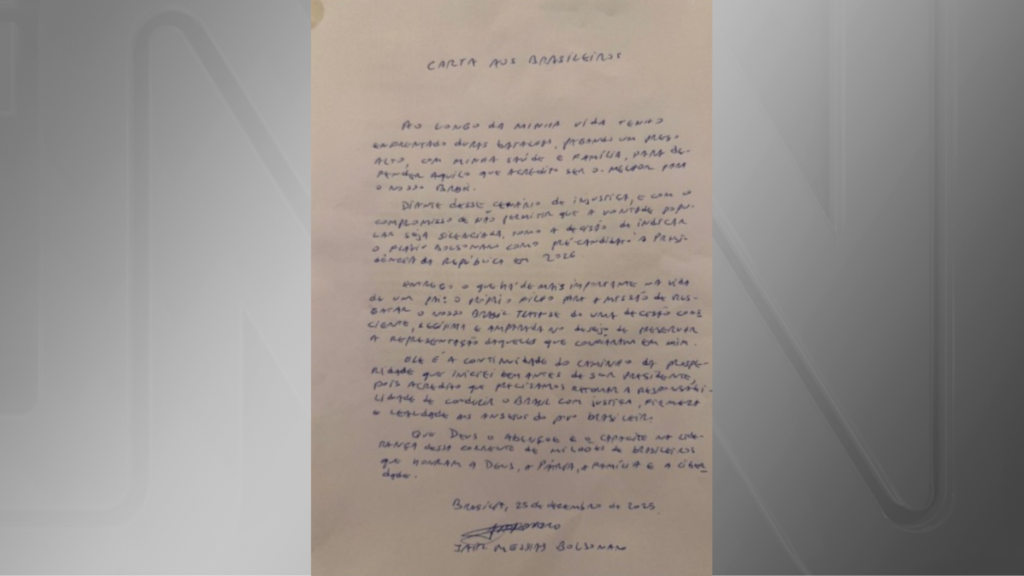 CARTA AOS BRASILEIROS
AO LONGO DA MINHA VIDA TENHO
ENFRENTADO DURAS BATALHAS, PAGANDO UM PREÇO
ALTO, COM MINHA SAÚDE E FAMÍLIA, PARA DE-
FENDER AQUILO QUE ACREDITO SER O MELHOR PARA
O NOSSO BRASIL.
DIANTE DESSE CENÁRIO DE INJUSTIÇA, E COM O
COMPROMISSO DE NÃO PERMITIR QUE A VONTADE POPU-
LAR SEJA SILENCIADA, TOMO A DECISÃO DE INDICAR
O FLÁVIO BOLSONARO COMO PRÉ-CANDIDATO À PRESI-
DÊNCIA DA REPÚBLICA EM 2026
ENTREGO O QUE HÁ DE MAIS IMPORTANTE NA VIDA
DE UM PAI: O PRÓPRIO FILHO PARA A MISSÃO DE RES-
GATAR O NOSSO BRASIL. TRATA-SE DE UMA DECISÃO CONS
CIENTE, LEGÍTIMA E AMPARADA NO DESEJO DE PRESERVAR
A REPRESENTAÇÃO DAQUELES QUE CONFIARAM EM MIM.
ELE É A CONTINUIDADE DO CAMINHO DA PROSPE-
RIDADE QUE INICIEI BEM ANTES DE SER PRESIDENTE,
POIS ACREDITO QUE PRECISAMOS RETOMAR A RESPONSABI-
LIDADE DE CONDUZIR O BRASIL COM JUSTIÇA, FIRMEZA
E LEALDADE AOS ANSEIOS DO POVO BRASILEIRO.
QUE DEUS O ABENÇOE E O CAPACITE NA LIDE-
RANÇA DESSA CORRENTE DE MILHÕES DE BRASILEIROS
QUE HONRAM A DEUS, A PÁTRIA, A FAMÍLIA E A LIBER-
DADE.
BRASÍLIA, 25 de dezembro de 2025.
JAIR MESSIAS BOLSONARO